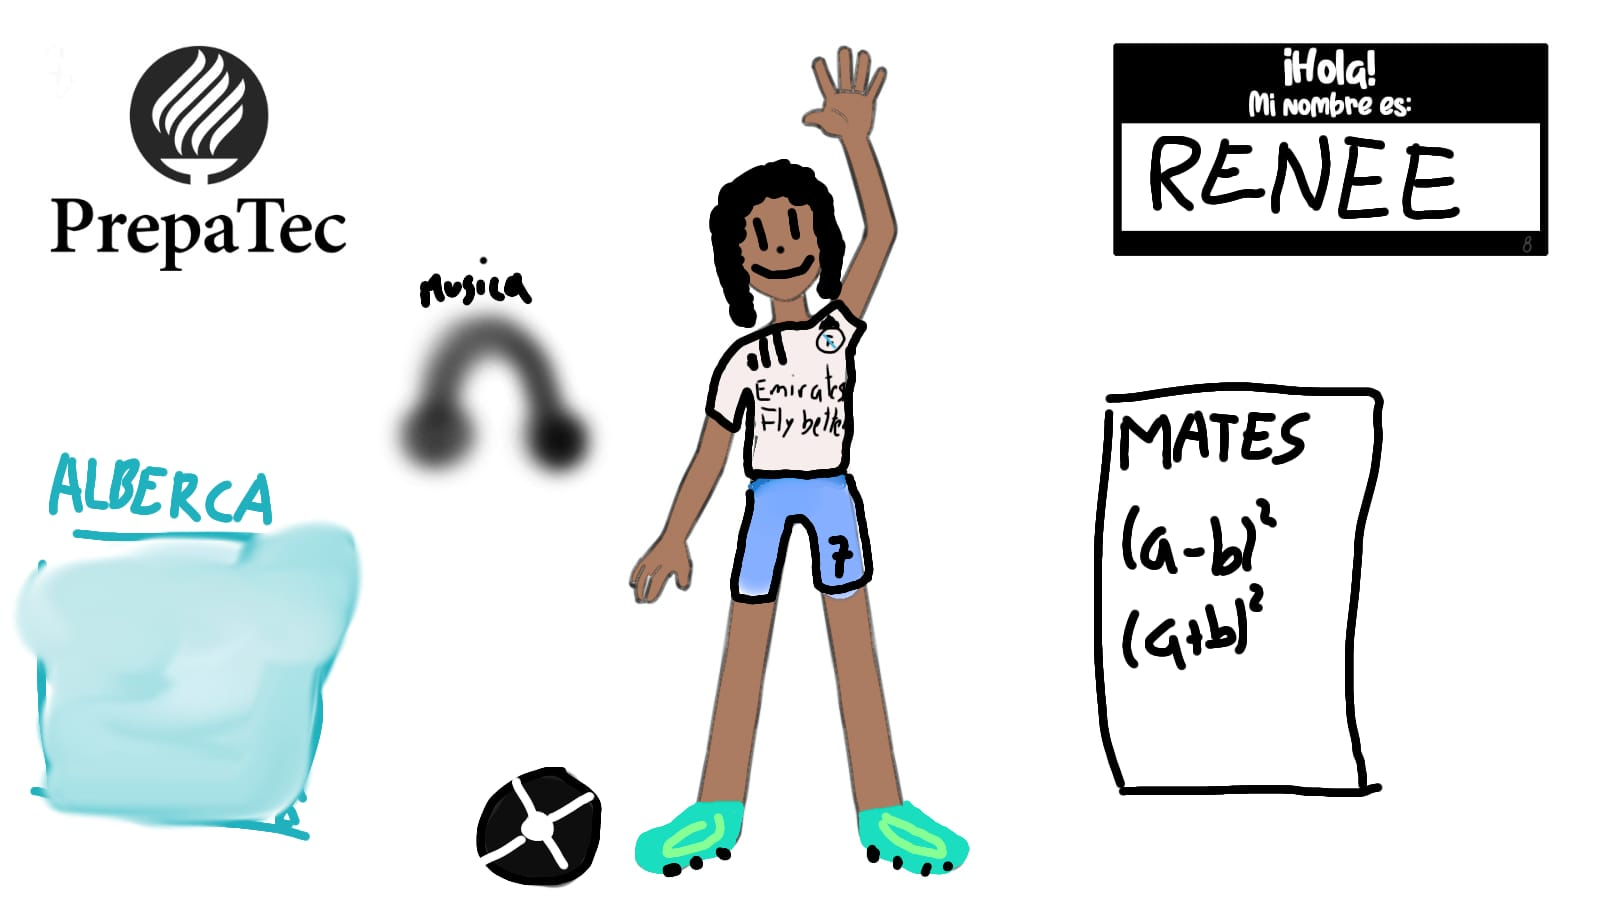 PrepaTec
¡Hola!
Mi nombre es:
RENEE
8
Musica
Emirates
Fly better
7
ALBERCA
MATES
(a-b)²
(a+b)²